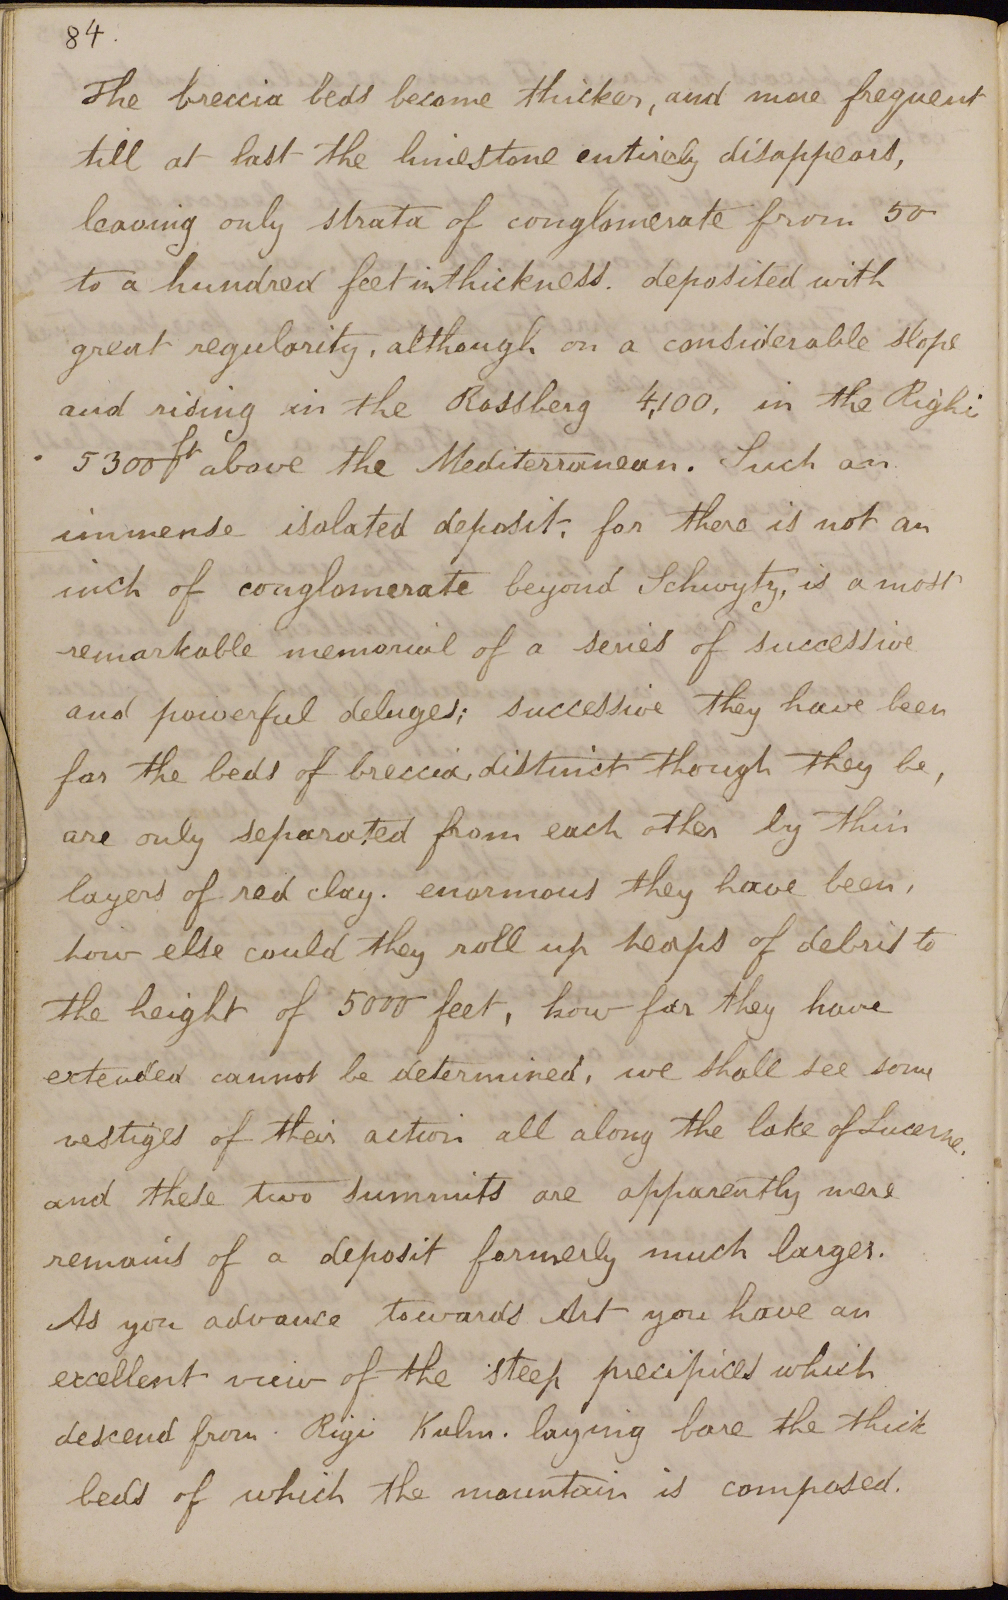 84.
The breccia beds become thicker, and more frequent
till at last the limestone entirely disappears,
leaving only strata of conglomerate from 50
to a hundred feet in thickness. deposited with
great regularity, although on a considerable slope
and rising in the Rossberg 4,100, in the Righi
5300 ft above the Mediterranean. Such an
immense isolated deposit, for there is not an
inch of conglomerate beyond Schwytz, is a most
remarkable memorial of a series of successive
and powerful deluges; successive they have been
for the beds of breccia, distinct though they be,
are only separated from each other by thin
layers of red clay. enormous they have been,
how else could they roll up heaps of debris to
the height of 5000 feet, how far they have
extended cannot be determined, we shall see some
vestiges of their action all along the lake of Lucerne.
and these two summits are apparently mere
remains of a deposit formerly much larger.
As you advance towards Art you have an
excellent view of the steep precipices which
descend from Rigi Kulm. laying bare the thick
beds of which the mountain is composed.